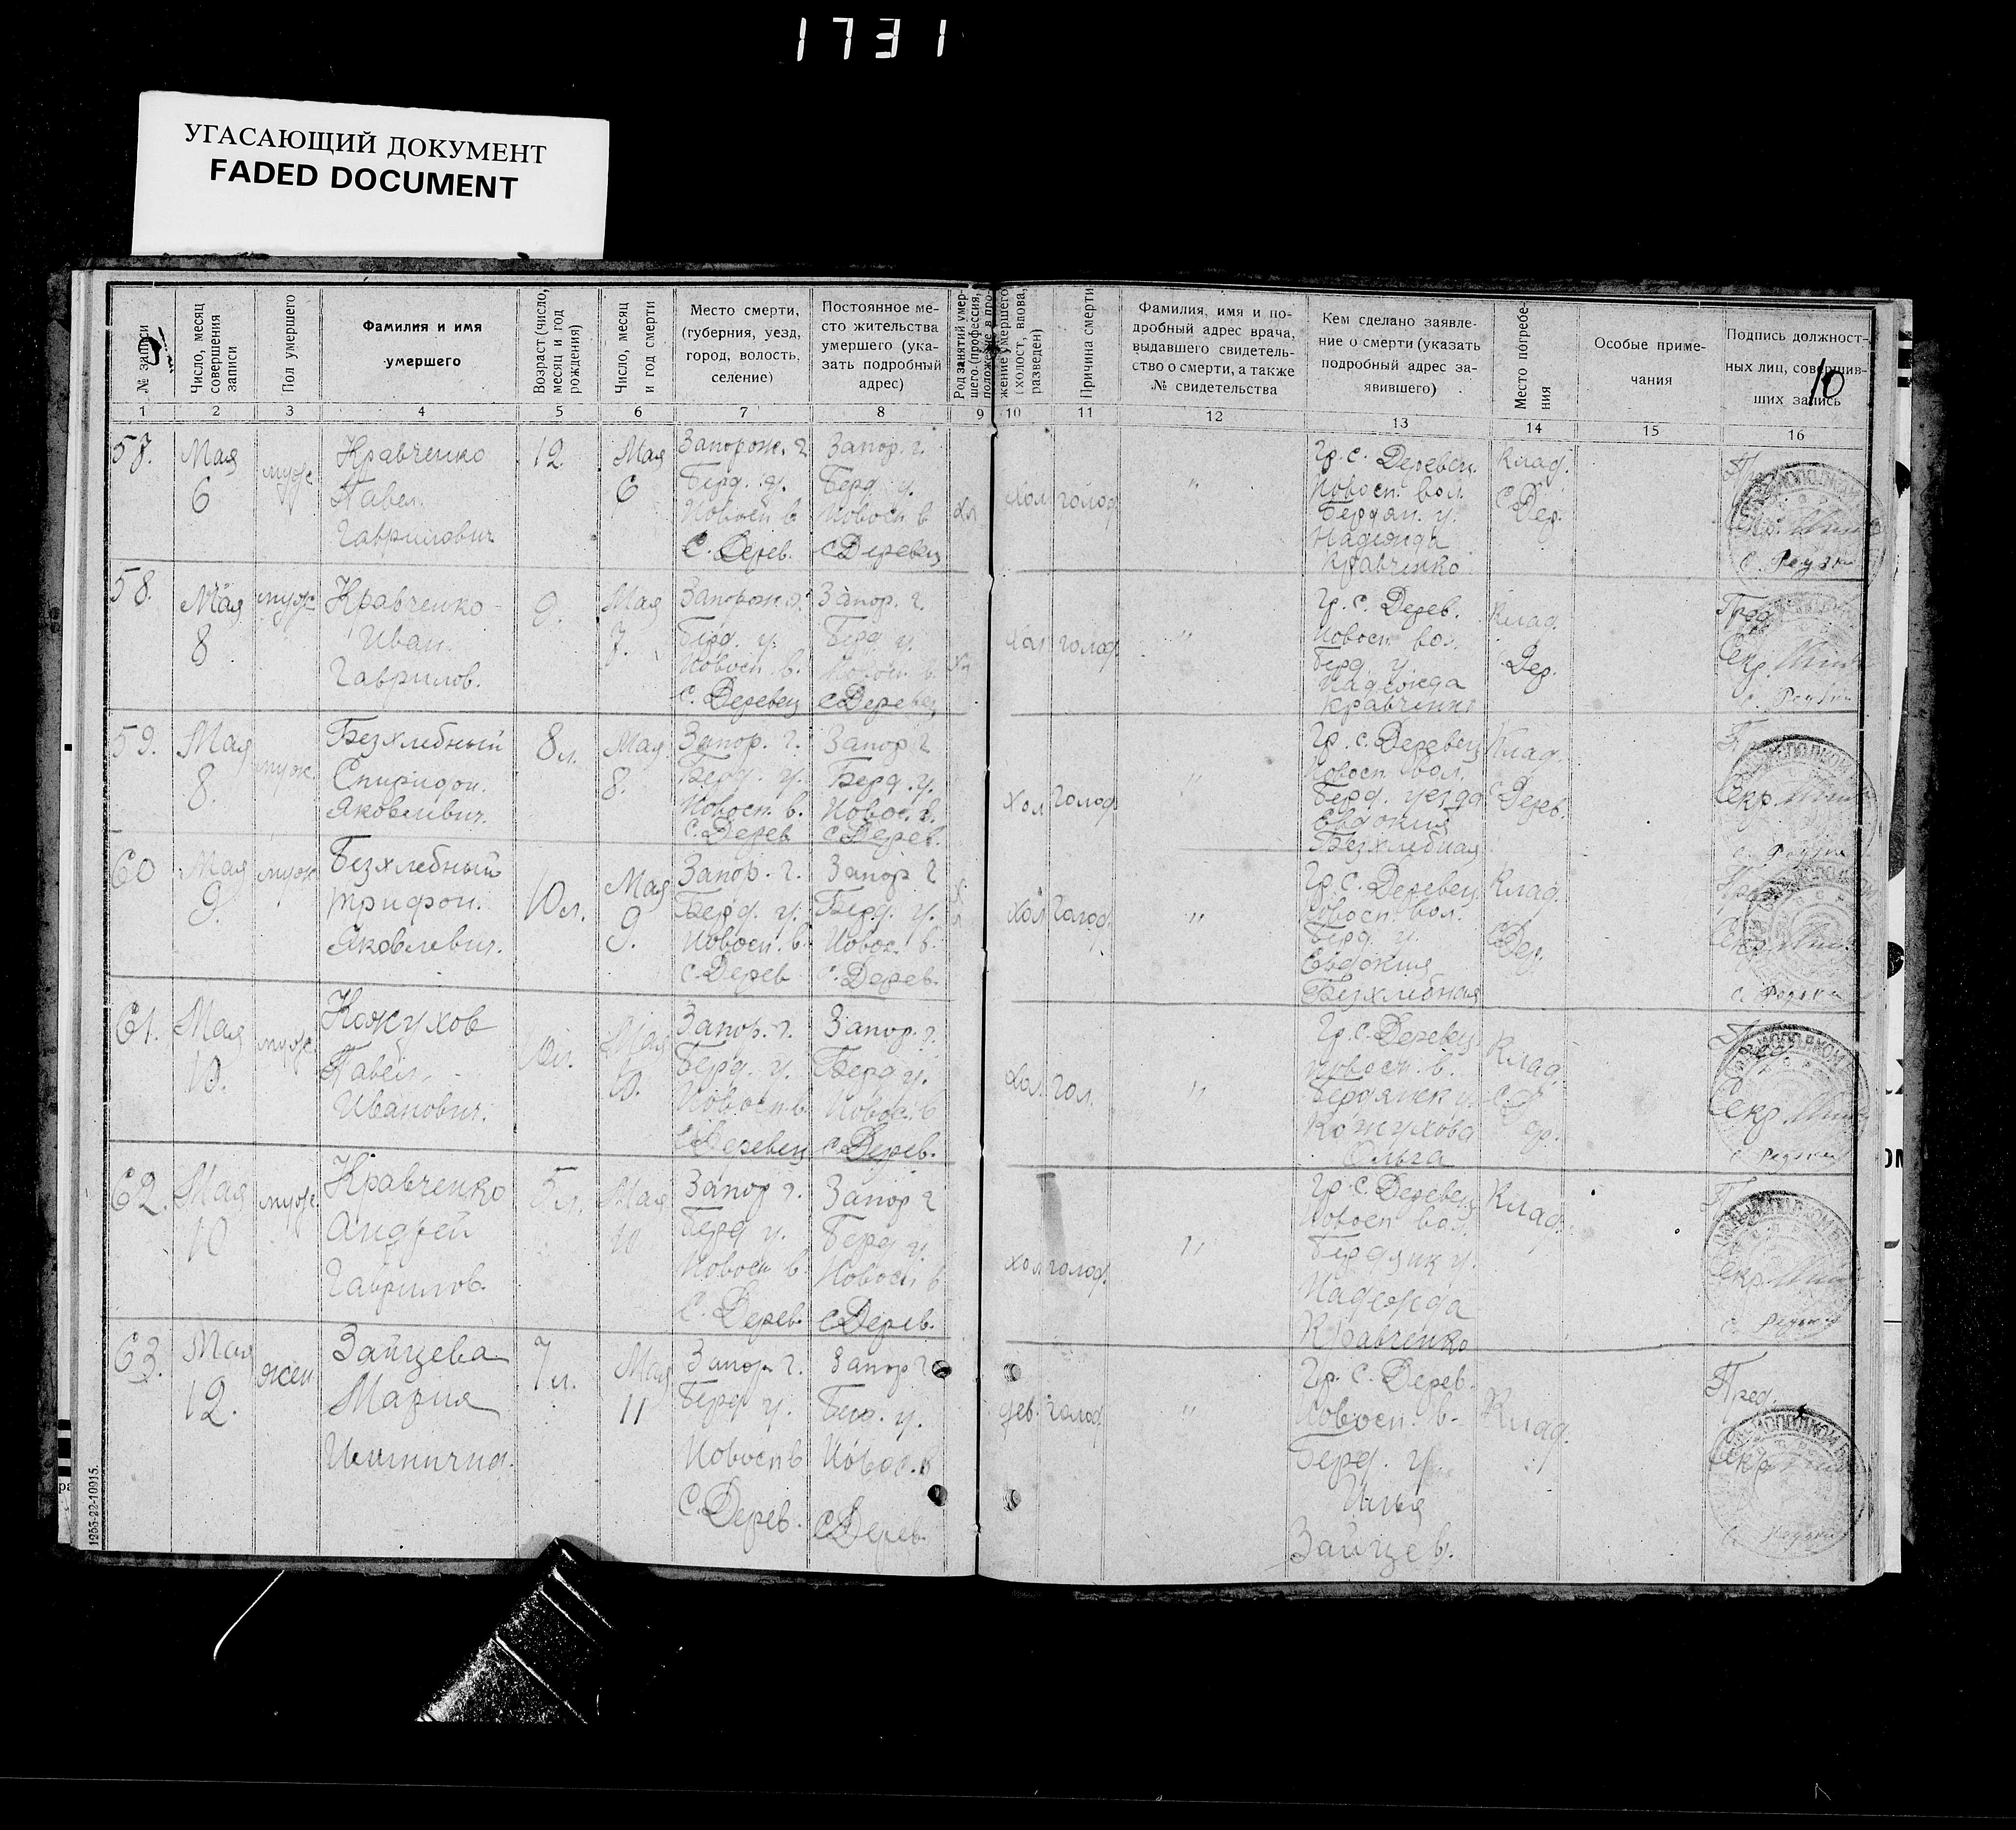 1731
УГАСАЮЩИЙ ДОКУМЕНТ
FADED DOCUMENT
№ записи
Число, месяц
совершения
записи
Пол умершего
Фамилия и имя
умершего
Возраст (число,
месяц и год
рождения)
Число, месяц
и год смерти
Место смерти,
(губерния, уезд,
город, волость,
селение)
Постоянное ме-
сто жительства
умершего (ука-
зать подробный
адрес)
Род занятий умер-
шего (профессия,
положение в про-
жение умершего
(холост, вдова,
разведен)
Причина смерти
Фамилия, имя и по-
дробный адрес врача,
выдавшего свидетель-
ство о смерти, а также
№ свидетельства
Кем сделано заявле-
ние о смерти (указать
подробный адрес за-
явившего)
Место погребе-
ния
Особые приме-
чания
Подпись должност-
ных лиц, совершив-
ших запись
10
1 2 3 4 5 6 7 8 9 10 11 12 13 14 15 16
57.
Мая
6
муж
Кравченко
Павел
Гаврилович
12
Мая
6
Запорож. г.
Берд. у.
Новосп в
С. Дерев.
Запор. г.
Берд. у.
Новосп в
с Деревец
хол
голод
"
Гр. с. Деревец
Новосп. вол.
Бердян. у.
Надежда
Кравченко
Клад.
с Дер.
58.
Мая
8
муж
Кравченко
Иван
Гаврилов.
9.
Мая
7.
Запорож. г.
Берд. у.
Новосп. в.
с. Деревец
Запор. г.
Берд. у.
Новосп. в.
с Деревец
хол
голод
"
Гр. с. Дерев.
Новосп. вол.
Берд. у.
Надежда
Кравченко
Клад.
с Дер.
Пред.
Секр.
59.
Мая
8.
муж.
Безхлебный
Спиридон.
Яковлевич.
8 л.
Мая
8.
Запор. г.
Берд. у.
Новосп. в.
с. Дерев
Запор г
Берд. у.
Новос. в.
с. Дерев.
хол
голод
"
Гр. с. Деревец
Новосп. вол.
Берд. уезда
Евдокия
Безхлебная
Клад.
с Дерев.
Секр.
60
Мая
9.
муж
Безхлебный
Трифон.
Яковлевич.
10 л.
Мая
9.
Запор. г.
Берд. у.
Новосп. в.
с. Дерев
Запор г
Берд. у.
Новос. в.
с. Дерев.
хол
голод.
"
Гр. с. Деревец
Новосп. вол.
Берд. у.
Евдокия
Безхлебная
Клад.
с Дер.
Пред
Секр.
61.
Мая
10.
муж.
Кожухов
Павел.
Иванович.
10 л.
Мая
10.
Запор. г.
Берд. у.
Новосп. в.
с Деревец
Запор. г.
Берд у.
Новос. в
с Дерев.
хол.
гол.
"
Гр. с. Деревец
Новосп. в.
Бердянск у.
Кожухова
Ольга
Клад
с. Дер.
Секр.
62.
Мая
10
муж
Кравченко
Андрей
Гаврилов.
5 л.
Мая
10
Запор г.
Берд у.
Новосп в.
С. Дерев.
Запор г
Берд у.
Новосп в
с Дерев.
хол
голод.
"
Гр. с. Деревец
Новосп вол.
Бердянк у.
Надежда
Кравченко
Клад.
Секр.
63.
Мая
12.
жен
Зайцева
Мария
Ильинична.
7 л.
Мая
11
Запор г.
Берд у.
Новосп в
С. Дерев.
Запор г
Берд. у.
Новос. в
с Дерев.
дев.
голод.
"
Гр. с. Дерев.
Новосп. в.
Берд. у.
Илья
Зайцев.
Клад.
Пред.
Секр
1255-22-10915.